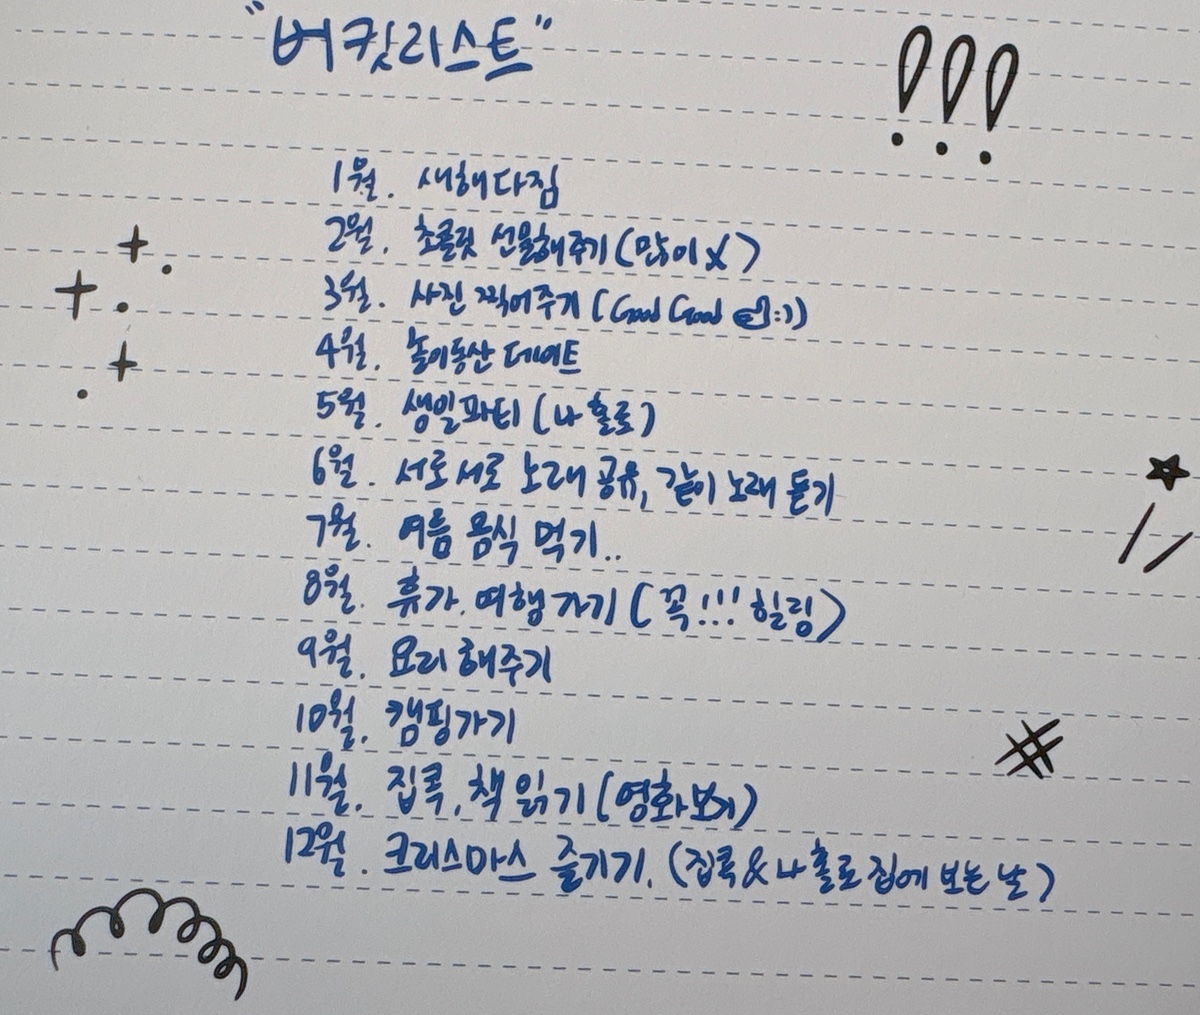 "버킷리스트"
1월. 새해다짐
2월. 초콜릿 선물해주기 (많이 X)
3월. 사진 찍어주기 (Good Good :))
4월. 놀이동산 데이트
5월. 생일파티 (나 홀로)
6월. 서로서로 노래 공유, 같이 노래 듣기
7월. 여름 음식 먹기..
8월. 휴가. 여행가기 (꼭!!! 힐링)
9월. 요리해주기
10월. 캠핑가기
11월. 집콕, 책 읽기 (영화보기)
12월. 크리스마스 즐기기. (집콕 & 나 홀로 집에 보는 날)